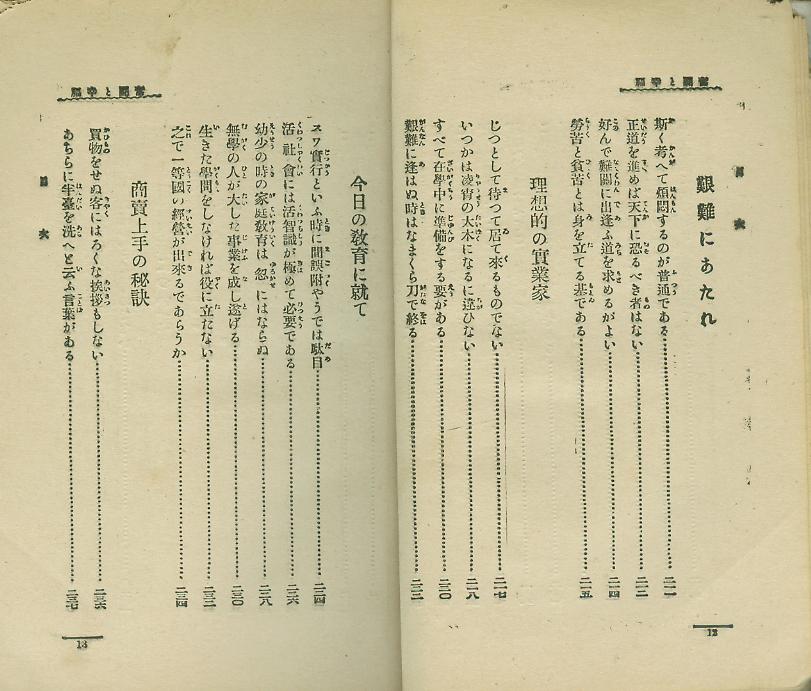 奮鬪と幸福
目次
艱難にあたれ
斯く考へて煩悶するのが普通である……二一一
正道を進めば天下に恐るべき者はない……二一二
好んで難關に出逢ふ道を求めるがよい……二一四
勞苦と貧苦とは身を立てる基である……二一五
理想的の實業家
じつとして待つて居て來るものでない……二一七
いつかは凌霄の大木になるに違ひない……二一八
すべて在學中に準備をする要がある……二二〇
艱難に逢はぬ時はなまくら刀で終る……二二二
12
奮鬪と幸福
今日の敎育に就て
スワ實行といふ時に間誤附やうでは駄目……二二四
活社會には活智識が極めて必要である……二二六
幼少の時の家庭敎育は忽にはならぬ……二二八
無學の人が大した事業を成し遂げる……二三〇
生きた學問をしなければ役に立たない……二三二
之で一等國の經營が出來るであらうか……二三四
商賣上手の秘訣
買物をせぬ客にはろくな挨拶もしない……二三六
あちらに半臺を洗へと云ふ言葉がある……二三七
目次
13